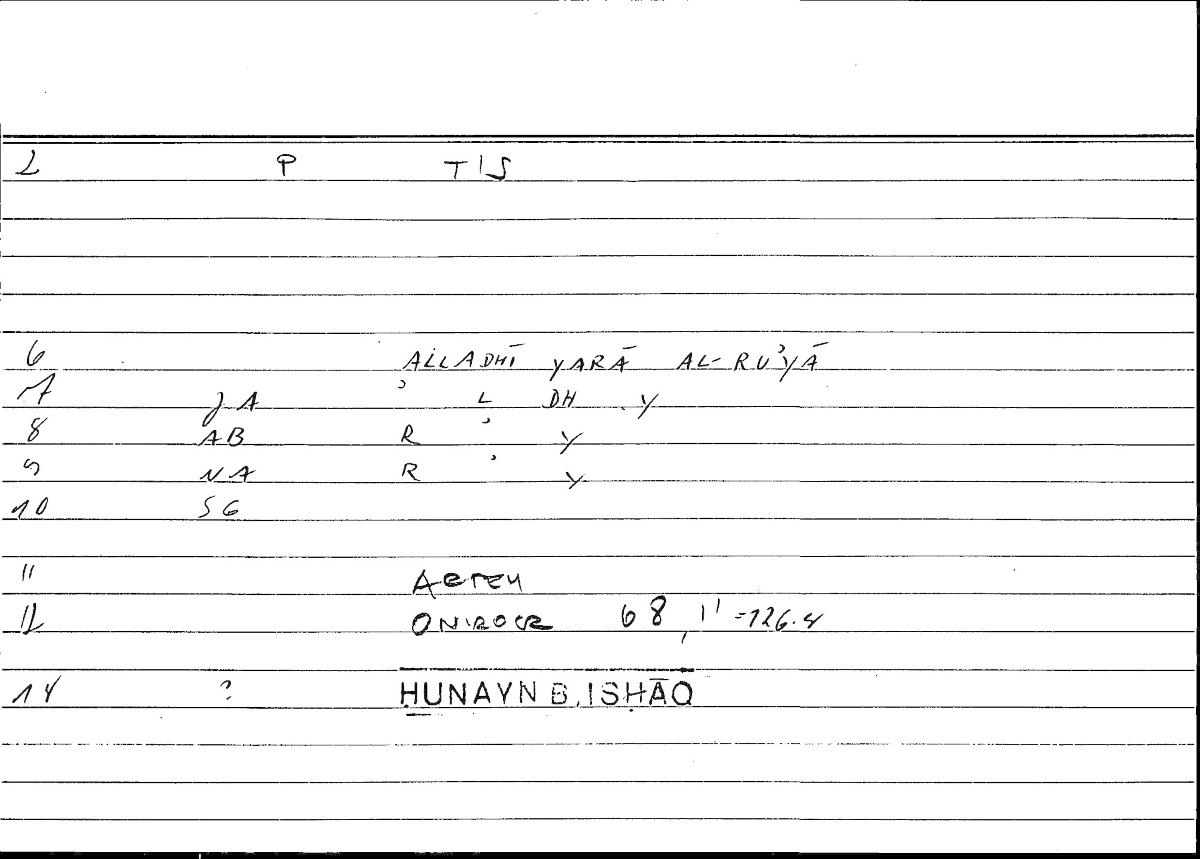 2 P TIS
6 ALLADHĪ YARĀ AL-RUʾYĀ
7 JA ʾ L DH Y
8 AB R ʾ Y
9 NA R ʾ Y
10 SG
11 ARTEM
12 ONIROCR 68,11 =126.4
14 ? ḤUNAYN B. ISḤĀQ